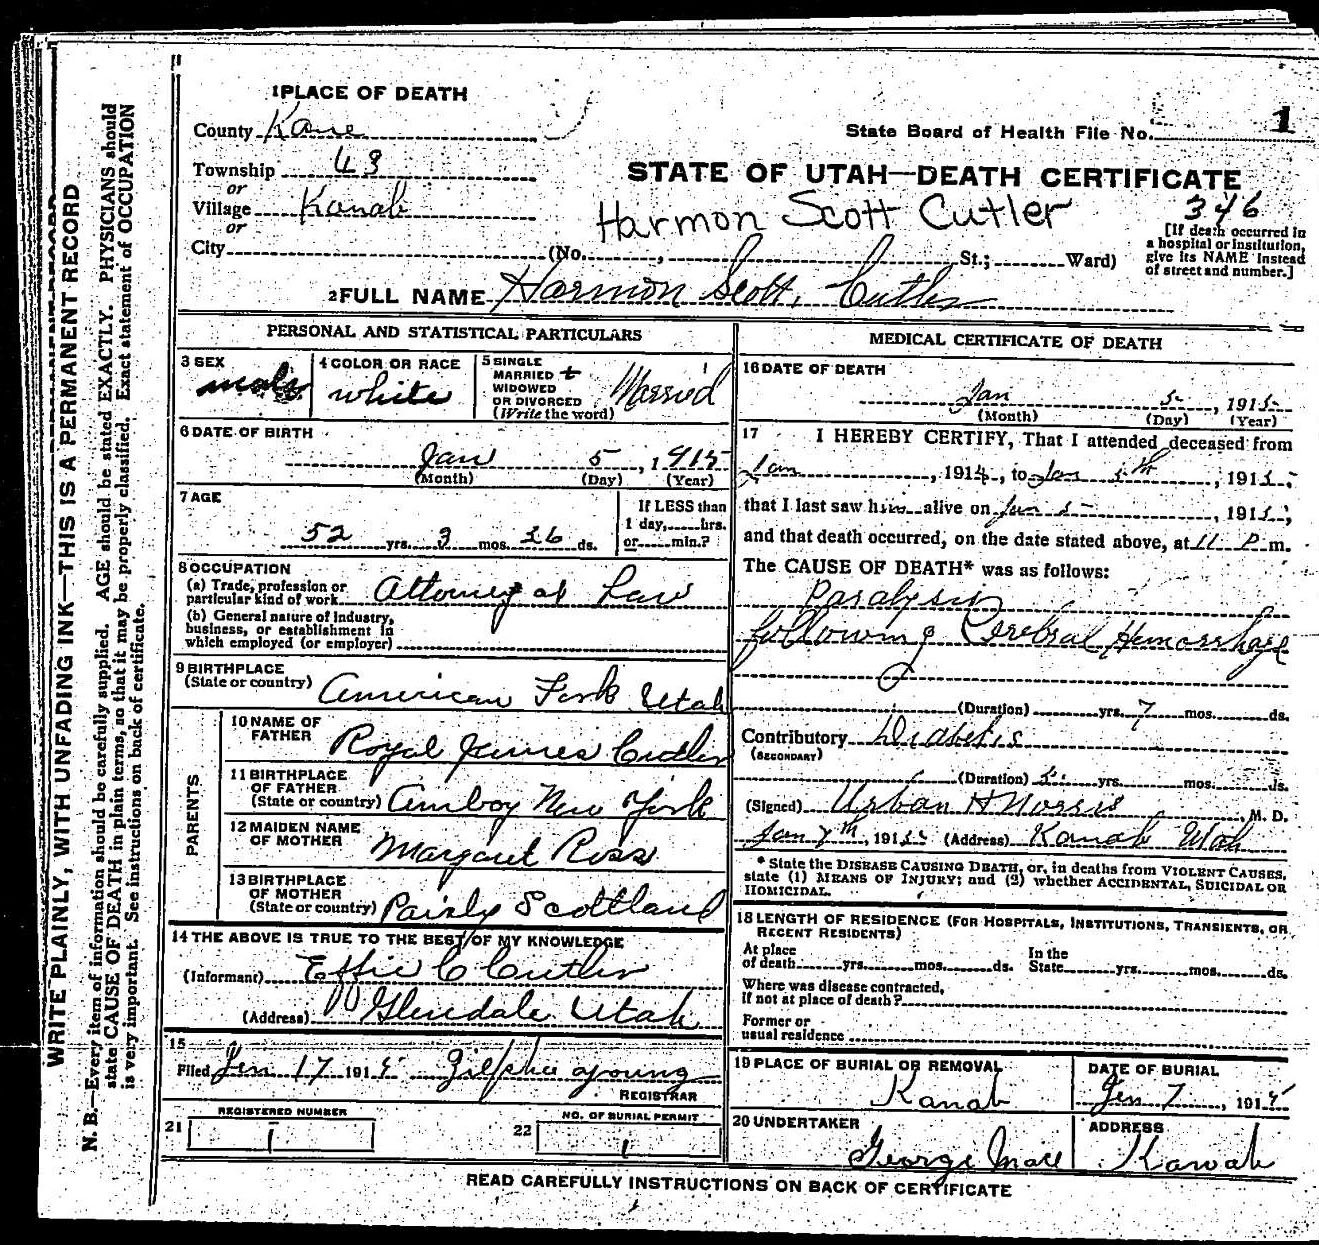 1 PLACE OF DEATH
County Kane
State Board of Health File No. 1
Township 43
or
Village Kanab
or
City (No. , St.; Ward)
STATE OF UTAH—DEATH CERTIFICATE
346
Harmon Scott Cutler
[If death occurred in
a hospital or institution,
give its NAME instead
of street and number.]
2 FULL NAME Harmon Scott Cutler
PERSONAL AND STATISTICAL PARTICULARS
3 SEX
male
4 COLOR OR RACE
white
5 SINGLE
MARRIED
WIDOWED
OR DIVORCED
(Write the word)
Married
6 DATE OF BIRTH
Jan 5, 1915
(Month) (Day) (Year)
7 AGE
52 yrs. 3 mos. 26 ds.
If LESS than
1 day, hrs.
or min.?
8 OCCUPATION
(a) Trade, profession or
particular kind of work Attorney at Law
(b) General nature of industry,
business, or establishment in
which employed (or employer)
9 BIRTHPLACE
(State or country) American Fork Utah
PARENTS
10 NAME OF
FATHER Royal James Cutler
11 BIRTHPLACE
OF FATHER
(State or country) Amboy New York
12 MAIDEN NAME
OF MOTHER Margaret Ross
13 BIRTHPLACE
OF MOTHER
(State or country) Paisly Scottland
14 THE ABOVE IS TRUE TO THE BEST OF MY KNOWLEDGE
(Informant) Effie C Cutler
(Address) Glendale Utah
15
Filed Jan 17 1915
REGISTRAR
21 REGISTERED NUMBER
1
22 NO. OF BURIAL PERMIT
1
MEDICAL CERTIFICATE OF DEATH
16 DATE OF DEATH
Jan 5, 1915
(Month) (Day) (Year)
17 I HEREBY CERTIFY, That I attended deceased from
Jan , 1914, to Jan 5th, 1915,
that I last saw him alive on Jan 5, 1915,
and that death occurred, on the date stated above, at 11 P m.
The CAUSE OF DEATH* was as follows:
Paralysis
following Cerebral Hemorrhage
(Duration) yrs. 7 mos. ds.
Contributory Diabetis
(SECONDARY)
(Duration) 5 yrs. mos. ds.
(Signed) Urban H Norris, M. D.
Jan 7th, 1915 (Address) Kanab Utah
* State the DISEASE CAUSING DEATH, or, in deaths from VIOLENT CAUSES,
state (1) MEANS OF INJURY; and (2) whether ACCIDENTAL, SUICIDAL OR
HOMICIDAL.
18 LENGTH OF RESIDENCE (FOR HOSPITALS, INSTITUTIONS, TRANSIENTS, OR
RECENT RESIDENTS)
At place
of death yrs. mos. ds.
In the
State yrs. mos. ds.
Where was disease contracted,
if not at place of death?
Former or
usual residence
19 PLACE OF BURIAL OR REMOVAL
Kanab
DATE OF BURIAL
Jan 7, 1915
20 UNDERTAKER
George Mace
ADDRESS
Kanab
READ CAREFULLY INSTRUCTIONS ON BACK OF CERTIFICATE
WRITE PLAINLY, WITH UNFADING INK—THIS IS A PERMANENT RECORD
N. B.—Every item of information should be carefully supplied. AGE should be stated EXACTLY. PHYSICIANS should
state CAUSE OF DEATH in plain terms, so that it may be properly classified. Exact statement of OCCUPATION
is very important. See instructions on back of certificate.